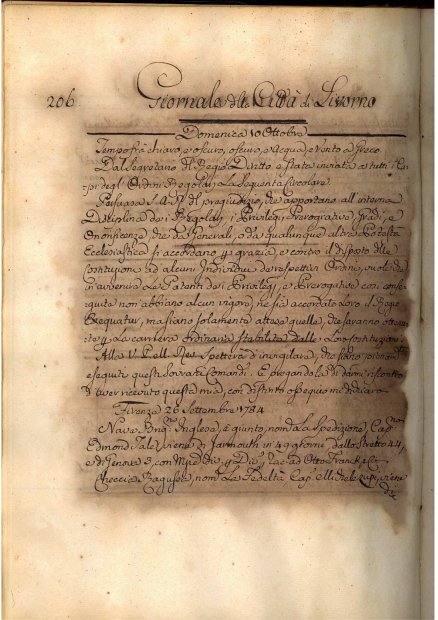 206
Giornale della Città di Livorno
Domenica 10 Ottobre
Tempo frà chiaro, e oscuro, oscuro, e acqua, e vento a Greco.
Dal Segretario del Regio Diritto è stata inviata a tutti i Ca-
pi degl'Ordini Regolari la seguente Circolare.
Pesa a S.A.R. il pregiudizio, che apportano all'interna
Disciplina dei Regolari i Privilegi, Prerogative, gradi, e
onorificenze, che da Generali, o da qualunque altra Potestà
Ecclesiastica si accordano per grazia, e contro il disposto delle
Costituzioni ad alcuni Individui de rispettivi Ordini, vuole che
in avvenire le Patenti dei Privilegi, e Prerogative con
non abbiano alcun vigore, ne sia accordato loro il Regio
Exequatur, ma siano solamente attese quelle, che saranno ottenu-
te per la carriera ordinaria stabilita dalle loro Costituzioni.
Alla V. P. M. Rev. spetterà d'invigilare, che siano
eseguiti questi Sovrani Comandi. E pregandola di darmi riscontro
d'aver ricevuto questa mia, con distinto ossequio mi dichiaro
Firenze 26 Settembre 1784
Nave Brig.no Inglese, è giunto, nom.a la Spedizione, Cap.no
Edmond viene di Jarmouth in 49 giorni dallo Stretto 44,
e di Genova 3, con ad Otto Franck, e C.
Checcia Ragusea, nom.a La Fedeltà Cap. Michele viene
di